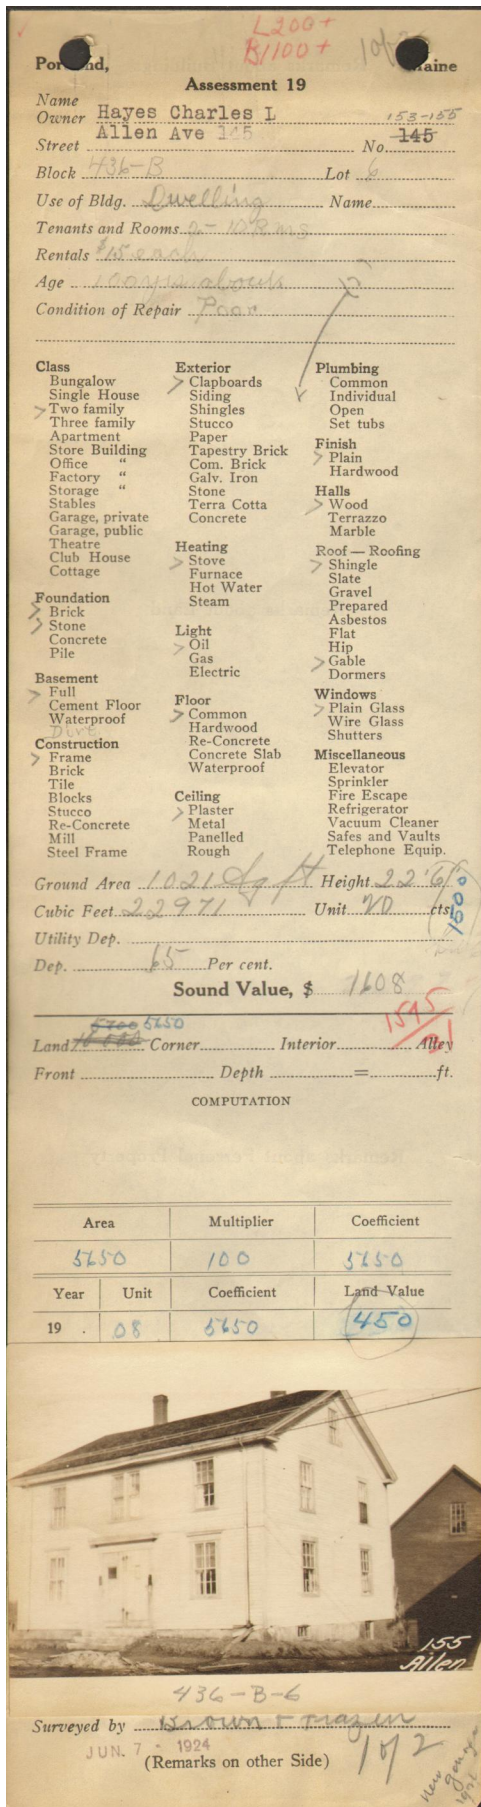 L200+
B1100+
Portland, Maine
Assessment 19
Name
Owner Hayes Charles L
153-155
Street Allen Ave 145 No. 145
Block 436-B Lot 6
Use of Bldg. Dwelling Name
Tenants and Rooms 2-10 Rms
Rentals $15 each
Age 100 yrs about
Condition of Repair Poor
Class
Bungalow
Single House
> Two family
Three family
Apartment
Store Building
Office "
Factory "
Storage "
Stables
Garage, private
Garage, public
Theatre
Club House
Cottage
Foundation
> Brick
> Stone
Concrete
Pile
Basement
> Full
Cement Floor
Waterproof
Dirt
Construction
> Frame
Brick
Tile
Blocks
Stucco
Re-Concrete
Mill
Steel Frame
Exterior
> Clapboards
Siding
Shingles
Stucco
Paper
Tapestry Brick
Com. Brick
Galv. Iron
Stone
Terra Cotta
Concrete
Heating
> Stove
Furnace
Hot Water
Steam
Light
> Oil
Gas
Electric
Floor
> Common
Hardwood
Re-Concrete
Concrete Slab
Waterproof
Ceiling
> Plaster
Metal
Panelled
Rough
Plumbing
Common
Individual
Open
Set tubs
Finish
> Plain
Hardwood
Halls
> Wood
Terrazzo
Marble
Roof — Roofing
> Shingle
Slate
Gravel
Prepared
Asbestos
Flat
Hip
> Gable
Dormers
Windows
> Plain Glass
Wire Glass
Shutters
Miscellaneous
Elevator
Sprinkler
Fire Escape
Refrigerator
Vacuum Cleaner
Safes and Vaults
Telephone Equip.
Ground Area 1021 Sq ft Height 22'6"
Cubic Feet 22971 Unit 20 cts.
1500
Utility Dep.
Dep. 65 Per cent.
Sound Value, $ 1608
1595/31
5700 5650
Land 10000 Corner Interior Alley
Front Depth = ft.
COMPUTATION
Area Multiplier Coefficient
5650 100 5650
Year Unit Coefficient Land Value
19 . 08 5650 450
155
Allen
436-B-6
Surveyed by Brown & Frazier
JUN. 7 - 1924
(Remarks on other Side)
1 of 2